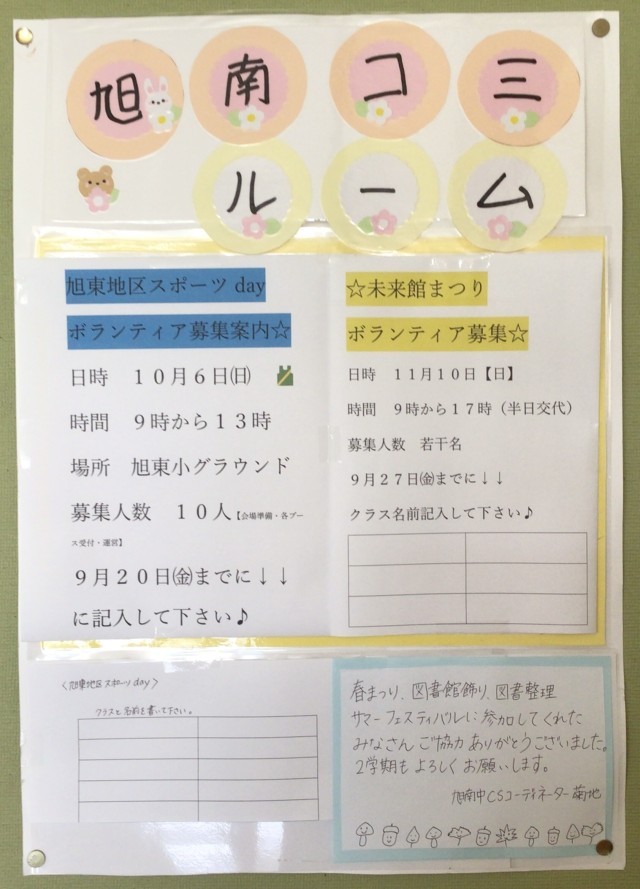 旭南コミ
ルーム
旭東地区スポーツday
ボランティア募集案内☆
日時　１０月６日㈰
時間　９時から１３時
場所　旭東小グラウンド
募集人数　１０人【会場準備・各ブー
ス受付・運営】
９月２０日㈮までに↓↓
に記入して下さい♪
☆未来館まつり
ボランティア募集☆
日時　１１月１０日【日】
時間　９時から１７時（半日交代）
募集人数　若干名
９月２７日㈮までに↓↓
クラス名前記入して下さい♪
＜旭東地区スポーツday＞
クラスと名前を書いて下さい。
春まつり、図書館飾り、図書整理
サマーフェスティバルに参加してくれた
みなさん ご協力 ありがとうございました。
2学期も よろしく お願いします。
旭南中CSコーディネーター 菊地